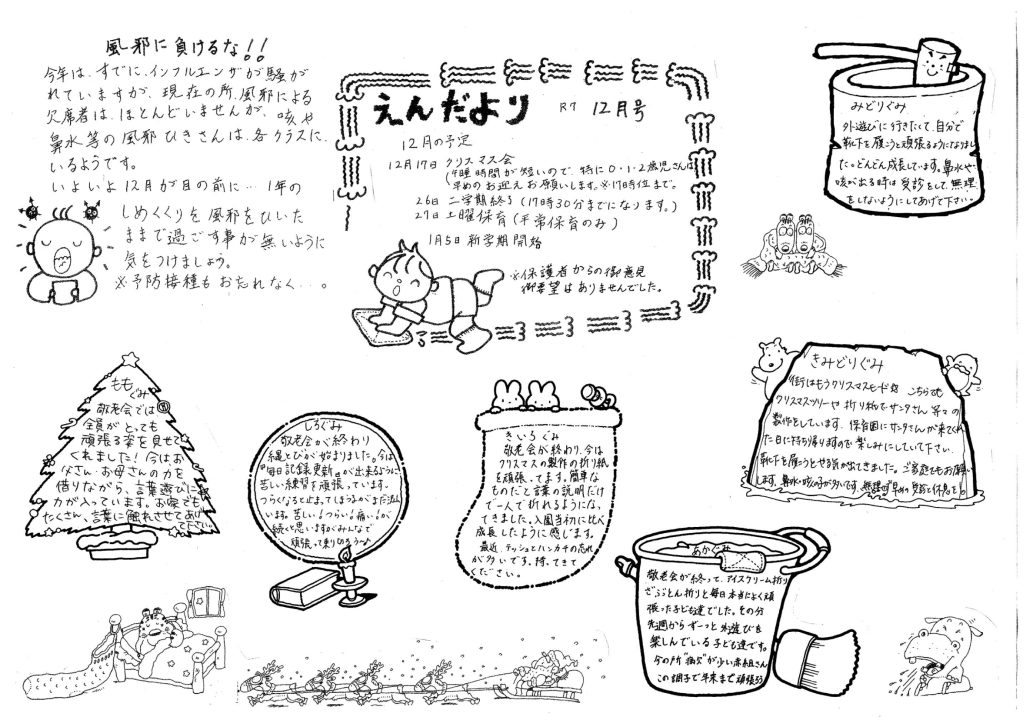 風邪に負けるな!!
今年は、すでに、インフルエンザが騒が
れていますが、現在の所、風邪による
欠席者は、ほとんどいませんが、咳や
鼻水等の風邪ひきさんは、各クラスに、
いるようです。
いよいよ12月が目の前に…1年の
しめくくりを風邪をひいた
ままで過ごす事が無いように
気をつけましょう。
※予防接種もお忘れなく…。
えんだより R7 12月号
12月の予定
12月17日 クリスマス会
(午睡時間が短いので、特に0・1・2歳児さんは
早めのお迎えお願いします。※17時位まで。
26日 二学期終る(17時30分までになります。)
27日 土曜保育(平常保育のみ)
1月5日 新学期開始
※保護者からの御意見
御要望はありませんでした。
みどりぐみ
外遊びに行きたくて、自分で
靴下を履こうと頑張るようになりまし
た。どんどん成長しています。鼻水や
咳が出る時は受診をして、無理
をしないようにしてあげて下さい。
ももぐみ
敬老会では
全員がとっても
頑張る姿を見せて
くれました!今はお
父さん・お母さんの力を
借りながら、言葉遊びに
力が入っています。お家でも
たくさん、言葉に触れさせてあげ
て下さい。
しろぐみ
敬老会が終わり
縄とびが始まりました。今は
『毎日記録更新』が出来るように
苦しい練習を頑張っています。
つらくなると止まってしまう
います。苦しい!つらい!痛い!が
続くと思いますがみんなで
頑張って乗り切ろうっと
きいろぐみ
敬老会が終わり、今は
クリスマスの製作の折り紙
を頑張ってます。簡単な
ものだと言葉の説明だけ
で一人で折れるようになっ
てきました。入園当初に比べ
成長したように感じます。
最近、ティッシュとハンカチの忘れ
が多いです。持ってきて
ください。
きみどりぐみ
街はもうクリスマスモード こちらでも
クリスマスツリーや折り紙でサンタさん等々の
製作をしています。保育園にサンタさんが来てくれ
た日に持ち帰りますので楽しみにしていて下さい。
靴下を履こうとやる気が出てきました。ご家庭でもお願い
します。鼻水・咳の子が多いです。早めの受診と休息を。
あかぐみ
敬老会が終って、アイスクリーム折り
ざぶとん折りと毎日本当によく頑
張った子ども達でした。その分
先週からずーっと外遊びを
楽しんでいる子ども達です。
今の所"病欠"が少い赤組さん
この調子で年末まで頑張ろう